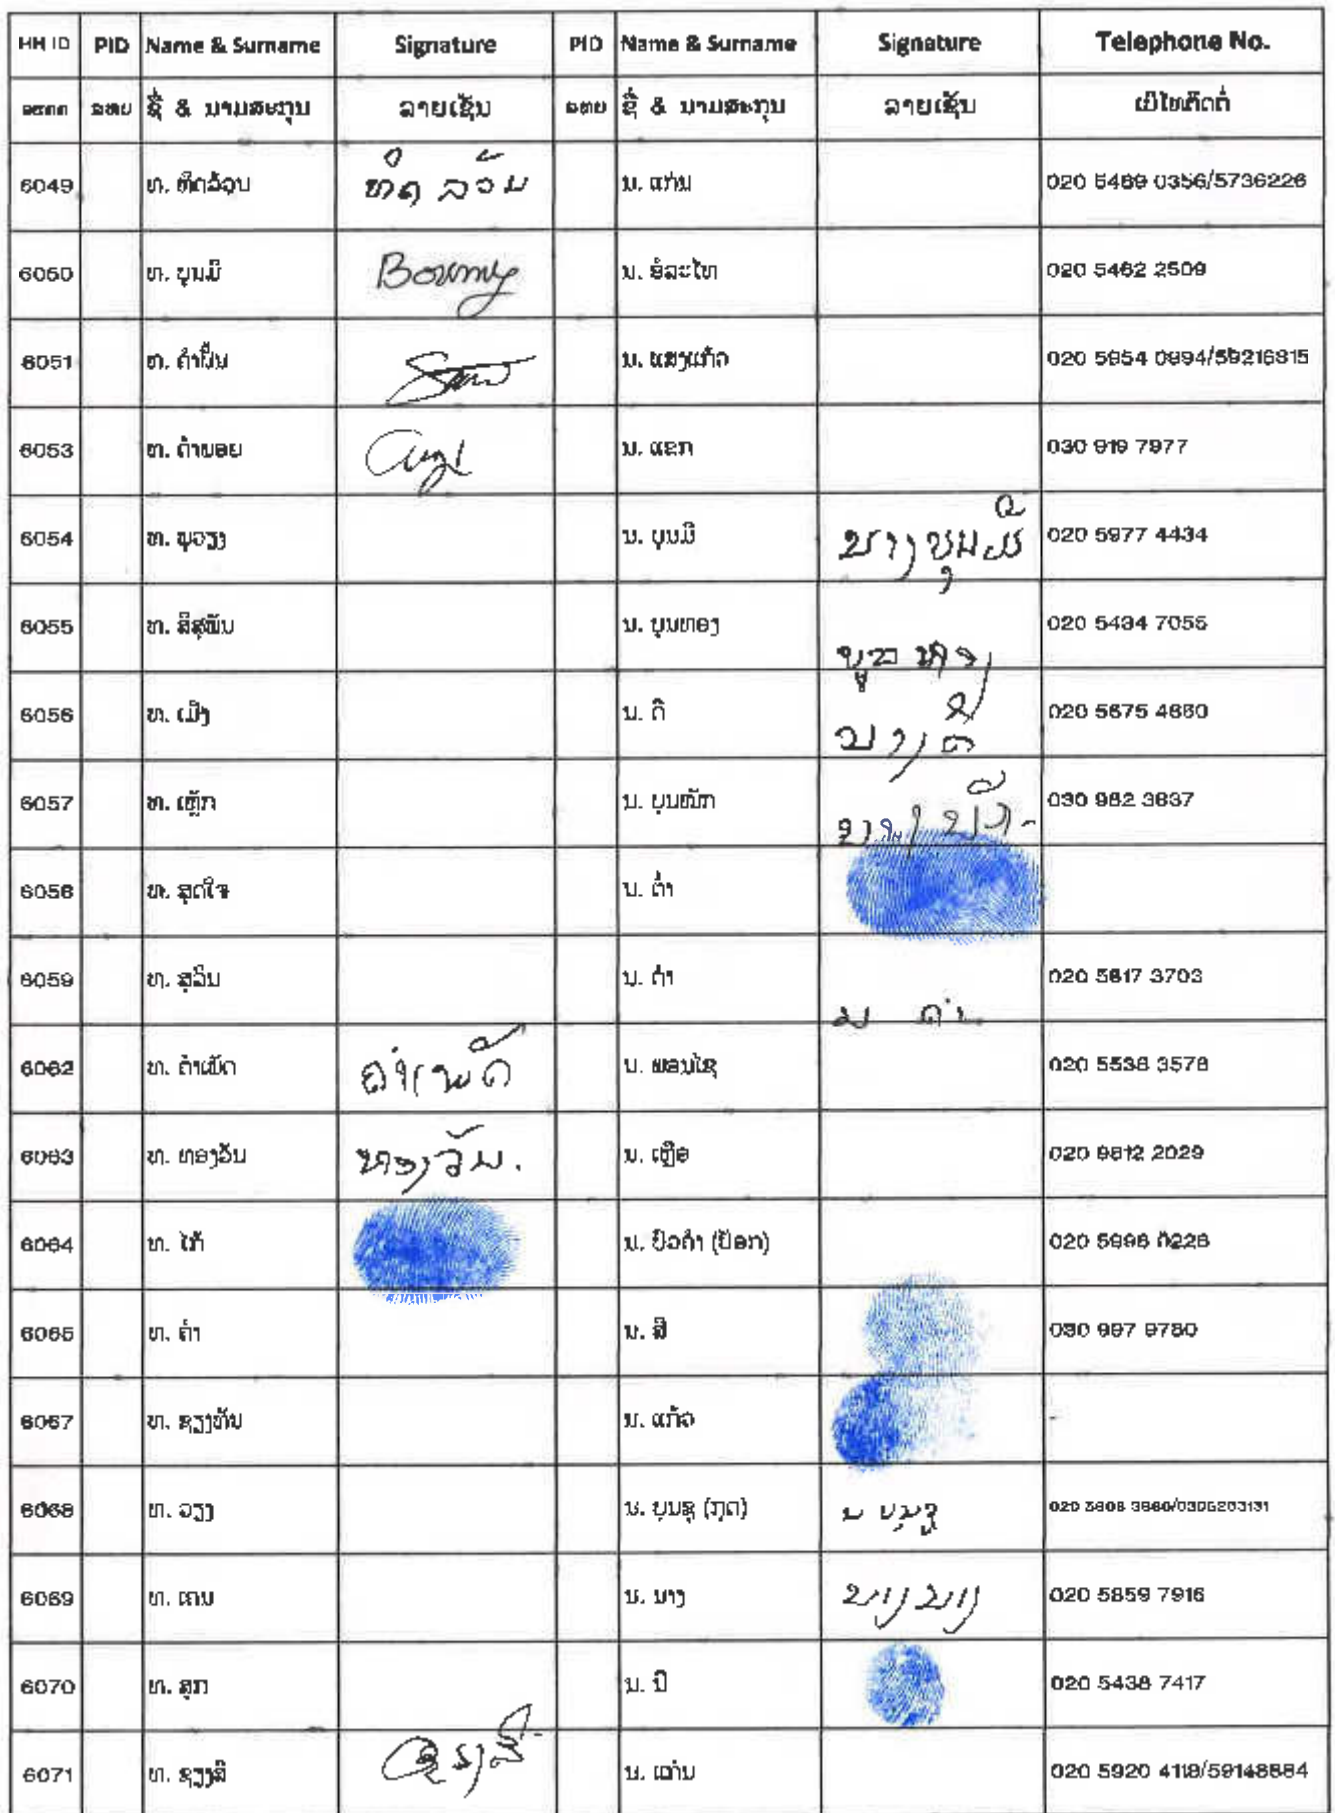 HH ID PID Name & Surname Signature PID Name & Surname Signature Telephone No.
ຊື່ & ນາມສະກຸນ ລາຍເຊັນ ຊື່ & ນາມສະກຸນ ລາຍເຊັນ ເບີໂທຕິດຕໍ່
6049 ທ. ທິດລ້ວນ ທິດ ລວັນ ນ. ແກ່ນ 020 5489 0356/5736226
6050 ທ. ບຸນມີ Bounmy ນ. ອໍລະໄທ 020 5462 2509
6051 ທ. ຄໍາຝັ້ນ ນ. ແສງແກ້ວ 020 5954 0994/59216815
6053 ທ. ຄໍາພອຍ ນ. ແຂກ 030 919 7977
6054 ທ. ພູວຽງ ນ. ບຸນມີ ນາງບຸນມີ 020 5977 4434
6055 ທ. ສີສຸພັນ ນ. ບຸນທອງ ບູນ ທອງ 020 5494 7055
6056 ທ. ເມີງ ນ. ຕີ ນາງຕີ 020 5675 4660
6057 ທ. ເຫຼັກ ນ. ບຸນໜັກ 030 982 3837
6058 ທ. ສຸດໃຈ ນ. ຕໍ່າ
6059 ທ. ສຸວິນ ນ. ຄໍາ ນ ຄໍາ 020 5817 3703
6062 ທ. ຄໍາເພັດ ຄໍາເພັດ ນ. ພອນໄຊ 020 5538 3578
6063 ທ. ທອງວັນ ທອງວັນ. ນ. ເຫຼືອ 020 9812 2029
6064 ທ. ໄກ້ ນ. ບົວຄໍາ (ປ໊ອກ) 020 5998 0226
6065 ທ. ຄໍາ ນ. ສີ 030 997 9780
6067 ທ. ຊຽງທັນ ນ. ແກ້ວ -
6068 ທ. ວຽງ ນ. ບຸນຊູ (ກຸດ) ນ ບຸນຊູ
6069 ທ. ເຄນ ນ. ນາງ ນາງນາງ 020 5859 7916
6070 ທ. ສຸກ ນ. ປີ 020 5438 7417
6071 ທ. ຊຽງສີ ຊຽງສີ ນ. ແກ່ນ 020 5920 4118/59148884